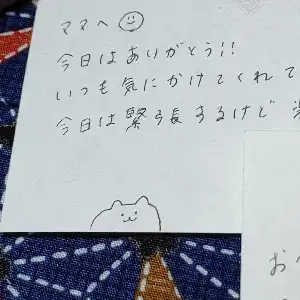 ママへ
今日はありがとう!!
いつも気にかけてくれて
今日は緊張するけど
お